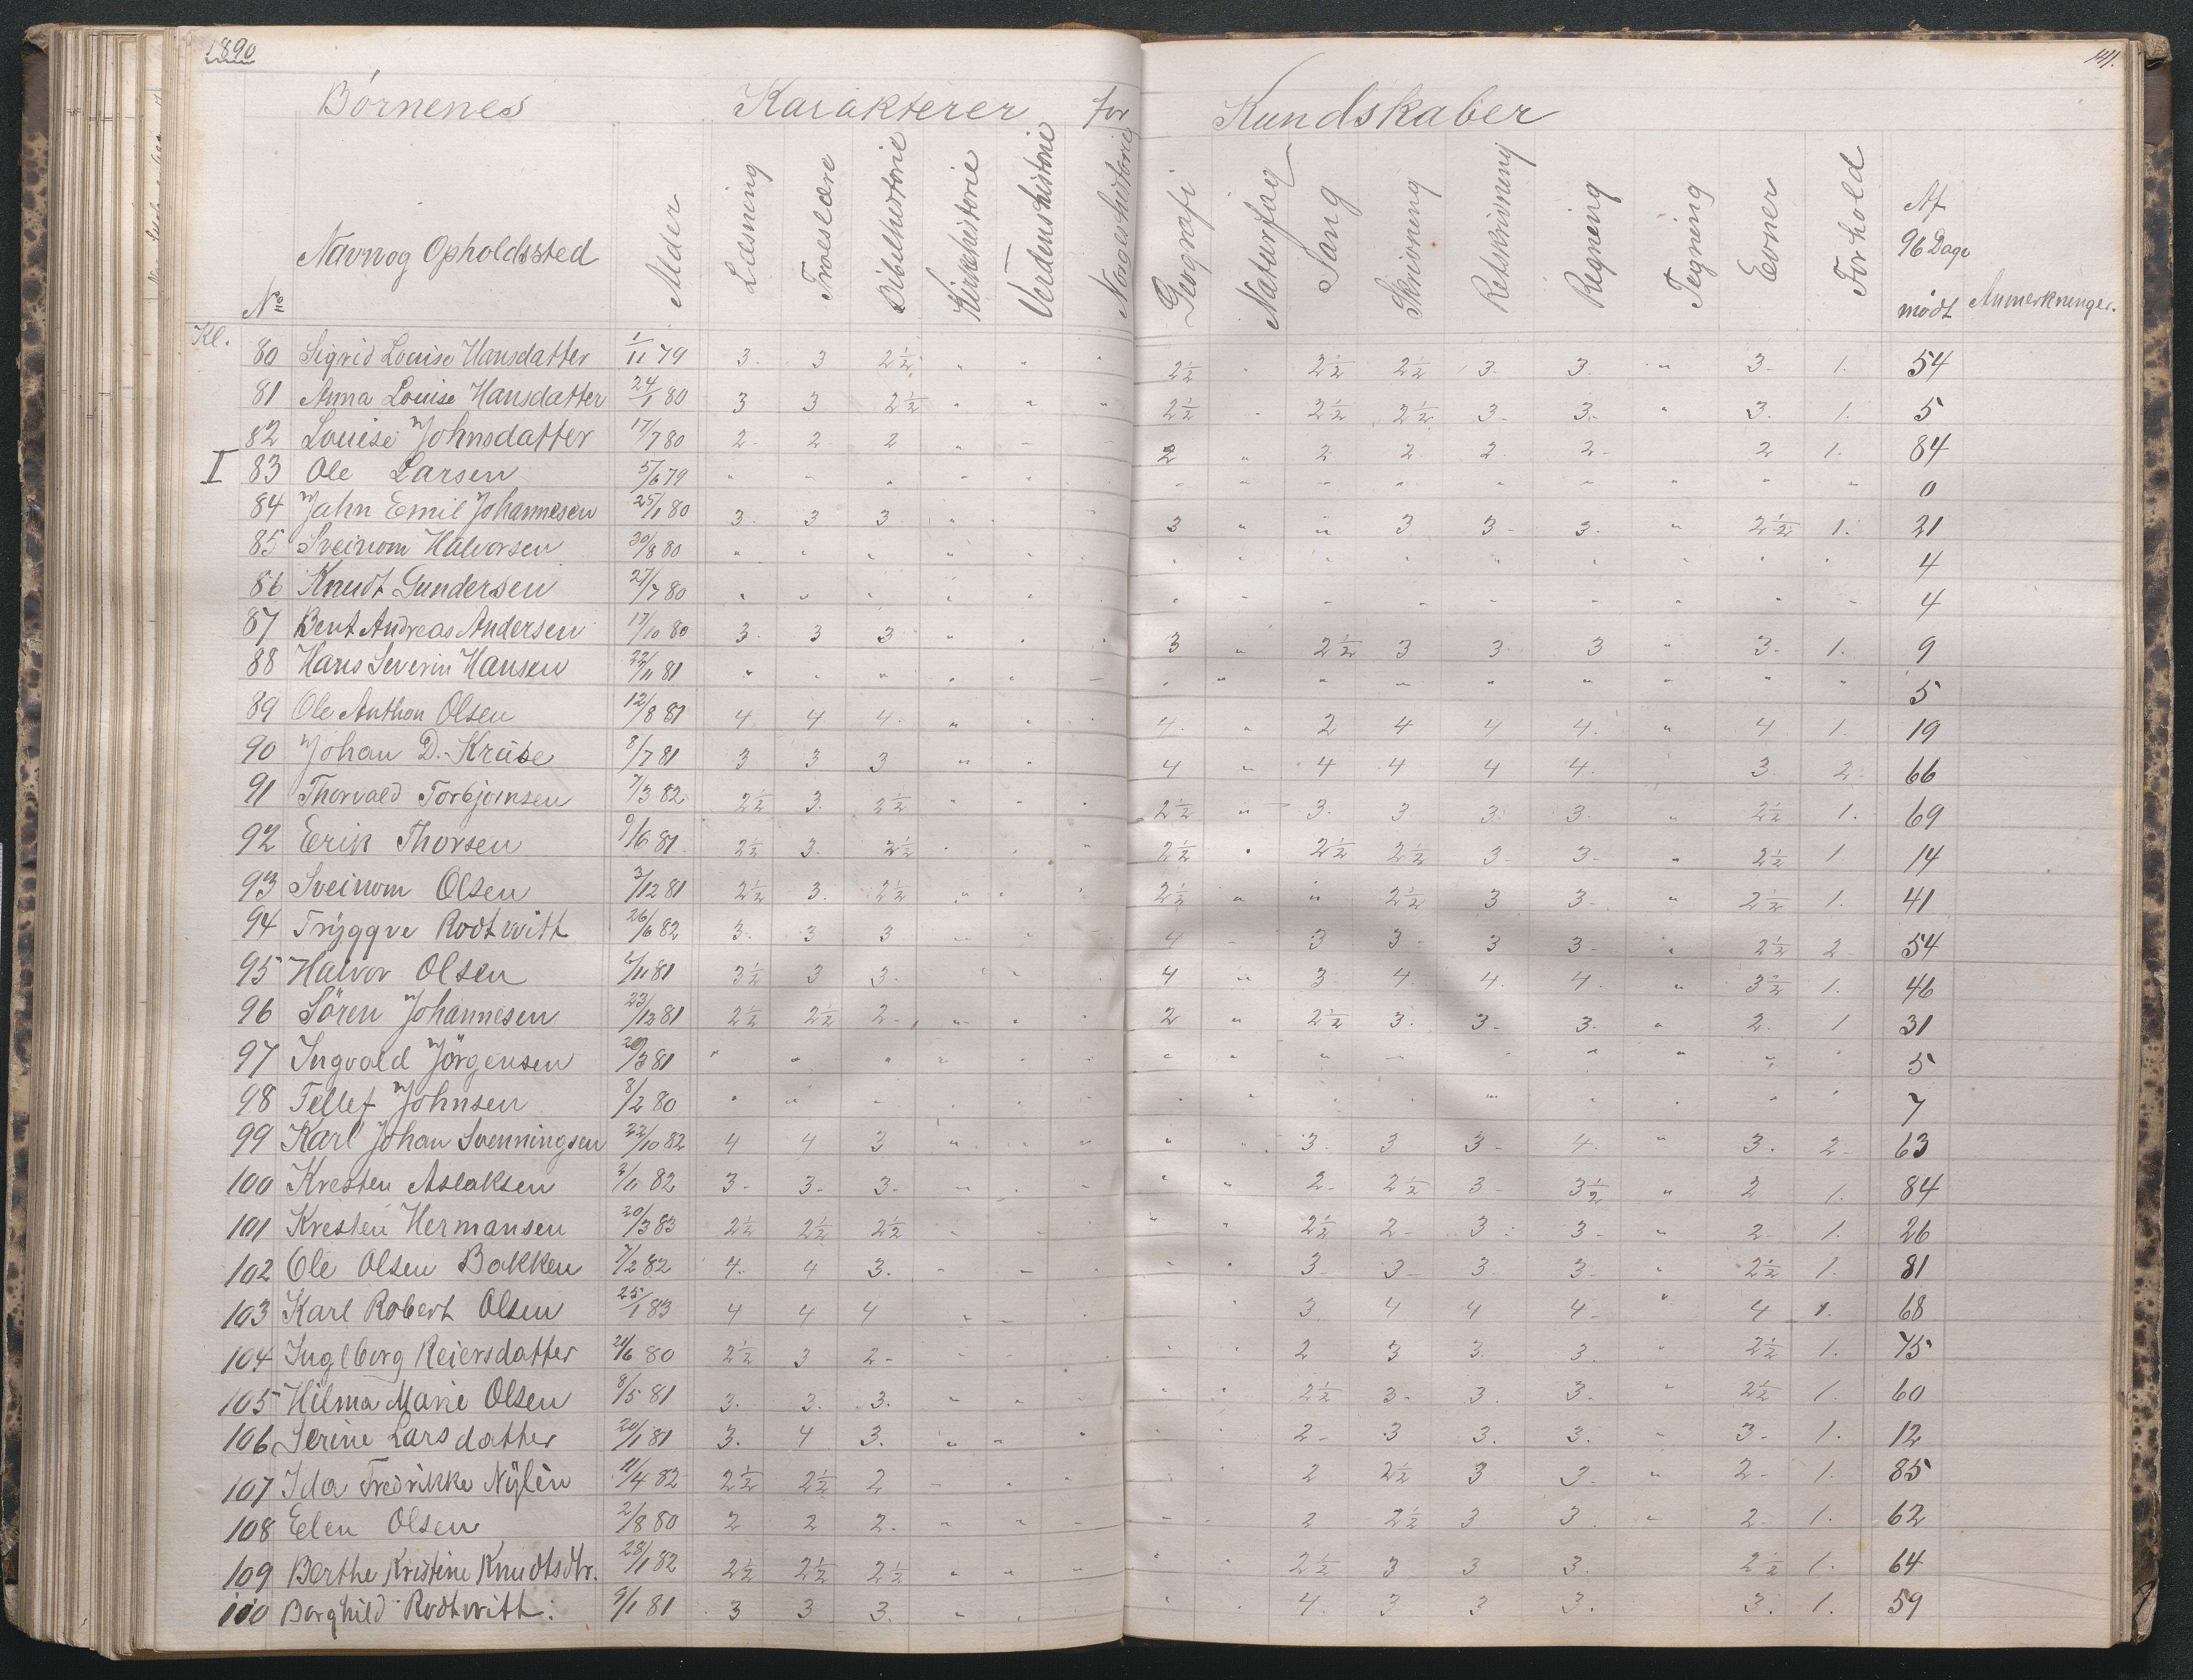 1890
141.
Børnenes Karakterer for Kundskaber
Kl. No Navn og Opholdssted Alder Læsning Troeslære Bibelhistorie Kirkehistorie Verdenshistorie Norgeshistorie Geografi Naturfag Sang Skrivning Retskrivning Regning Tegning Evner Forhold Af 96 Dage mødt Anmerkninger.
80 Sigrid Louise Hansdatter 1/11 79 3. 3 2½ " " " 2½ " 2½ 2½ 3. 3. " 3. 1. 54
81 Anna Louise Hansdatter 24/1 80 3 3 2½ " " " 2½ " 2½ 2½ 3. 3. " 3. 1. 5
82 Louise Johnsdatter 17/7 80 2 2 2 " " " 2 " 2 2 2 2 2 1. 84
I 83 Ole Larsen 5/6 79 " " " " " " " " " " " " " " 0
84 Jahn Emil Johannesen 25/1 80 3. 3 3 " " " 3 " " 3 3 3. " 2½ 1. 21
85 Sveinom Halvorsen 30/8 80 " " " " " " " " " " " " " " 4
86 Knudt Gundersen 27/7 80 " " " " " " " " " " " " " " 4
87 Bent Andreas Andersen 17/10 80 3. 3 3 " " " 3 " 2½ 3 3 3 " 3. 1. 9
88 Hans Severin Hansen 22/11 81 " " " " " " " " " " " " " " 5
89 Ole Anthon Olsen 12/8 81 4 4 4. " " " 4. " 2 4 4 4. " 4 1. 19
90 Johan D. Kruse 8/7 81 3 3 3 " " 4 " 4 4 4 4. 3 2 66
91 Thorvald Torbjørnsen 7/3 82 2½ 3. 2½ " " " 2½ " 3. 3 3 3. " 2½ 1. 69
92 Eerik Thorsen 9/6 81 2½ 3. 2½ " " " 2½ " 2½ 2½ 3 3 " 2½ 1 14
93 Sveinom Olsen 3/12 81 2½ 3. 2½ " " " 2½ " " 2½ 3 3 " 2½ 1. 41
94 Tryggve Rodtwitt 26/6 82 3. 3 3 " " " 4 " 3 3 3 3 " 2½ 2 54
95 Halvor Olsen 6/11 81 3½ 3 3. " " 4 " 3 4 4. 4. " 3½ 1. 46
96 Sören Johannesen 23/12 81 2½ 2½ 2 " " " 2 " 2½ 3. 3. 3. " 2. 1 31
97 Ingvald Jörgensen 20/3 81 " " " " " " " " " " " " " " 5
98 Tellef Johnsen 8/2 80 " " " " " " " " " " " " " " 7
99 Karl Johan Svenningsen 22/10 82 4 4 3 " " " " " 3. 3 3 4. " 3. 2 63
100 Kresten Aslaksen 2/11 82 3 3. 3. " " " " " 2 2½ 3 3½ " 2 1. 84
101 Kresten Hermansen 20/3 83 2½ 2½ 2½ " " " " 2½ 2 3 3 " 2 1. 26
102 Ole Olsen Bakken 7/2 82 4. 4 3. " " " " " 3 3 3 3 " 2½ 1. 81
103 Karl Robert Olsen 25/1 83 4 4 4 " " " " 3 4 4 4 " 4 1. 68
104 Ingeborg Reiersdatter 21/6 80 2½ 3 2 " " " " " 2 3 3. 3. " 2½ 1. 75
105 Hilma Marie Olsen 8/5 81 3. 3. 3. " " " " 2½ 3 3 3. " 2½ 1. 60
106 Serine Larsdatter 20/1 81 3. 4 3. " " " " " 2 3 3. 3. " 3. 1. 12
107 Ida Fredrikke Nylèn 11/4 82 2½ 2½ 2 " " " " " 2 2½ 3 3. " 2 1. 85
108 Elen Olsen 2/8 80 2 2 2. " " " " " 2 2½ 3 3. " 2 1. 62
109 Berthe Kristine Knudtsdtr. 28/1 82 2½ 2½ 2½ " " " " " 2½ 3 3 3. 2½ 1. 64
110 Borghild Rodtwitt. 9/1 81 3 3 3. " " " " 4. 3 3 3. 3. 1. 59